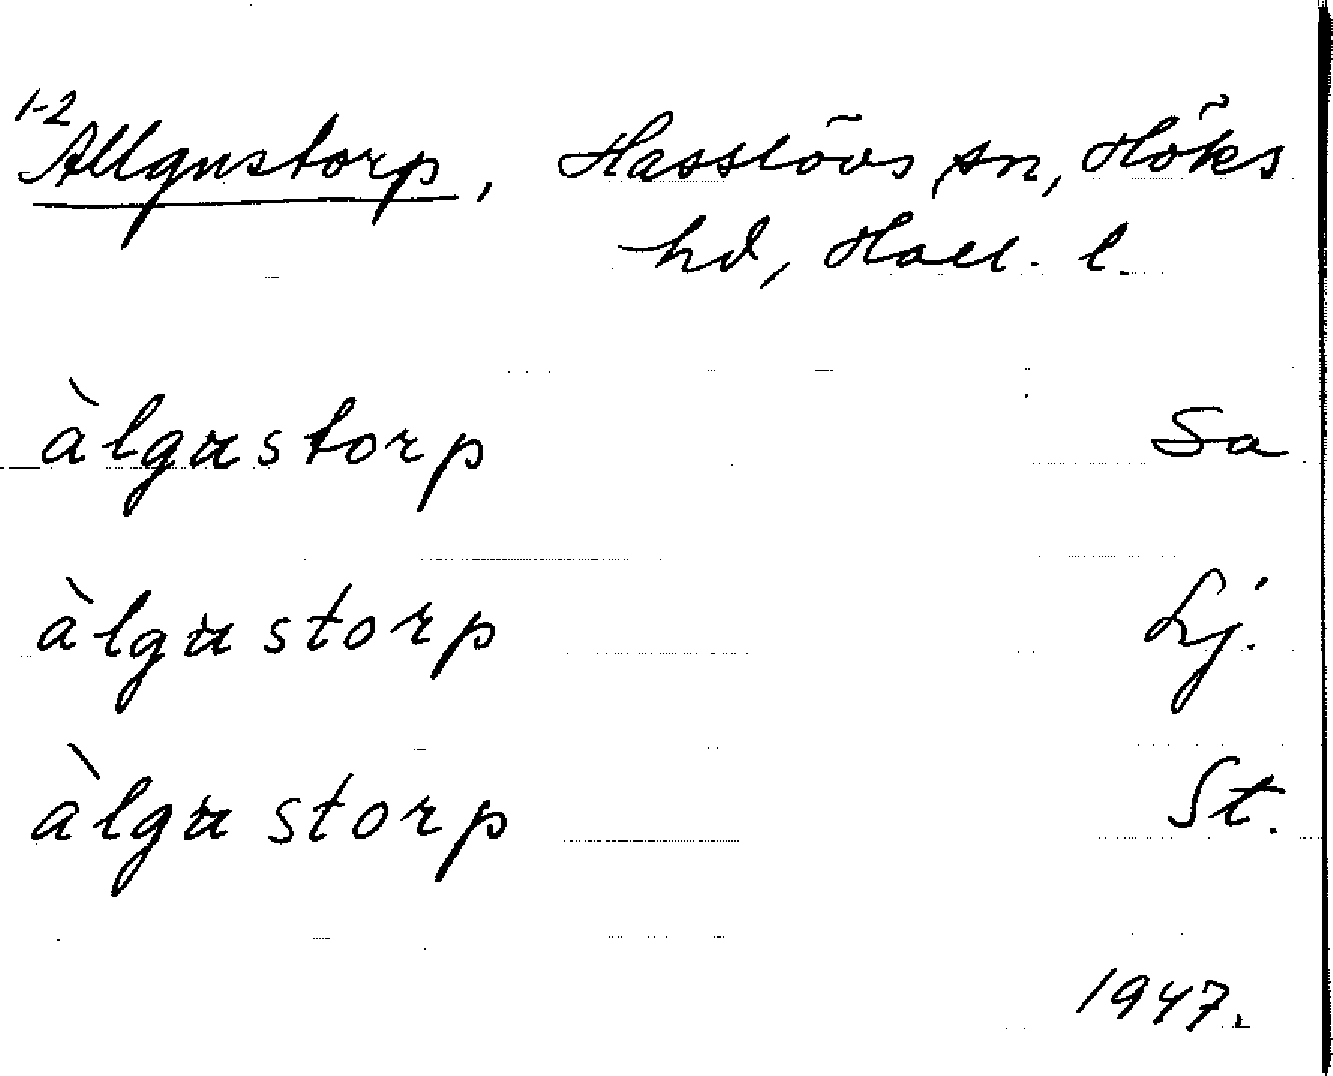 1-2
Allgustorp, Hasslövs sn, Höks
hd, Hall. l.
àlgustorp Sa
àlgustorp Lj.
àlgustorp St.
1947.